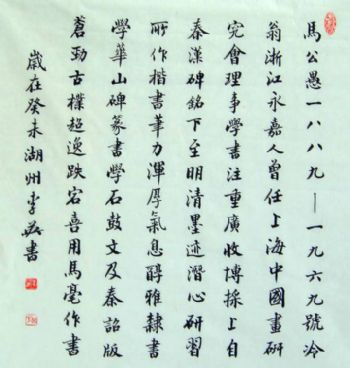 馬公愚一八八九——一九六九號冷
翁浙江永嘉人曾任上海中國畫研
究會理事學書注重廣收博採上自
秦漢碑銘下至明清墨迹潛心研習
所作楷書筆力渾厚氣息醇雅隸書
學華山碑篆書學石鼓文及秦詔版
蒼勁古樸超逸跌宕喜用馬毫作書
歲在癸未湖州李書